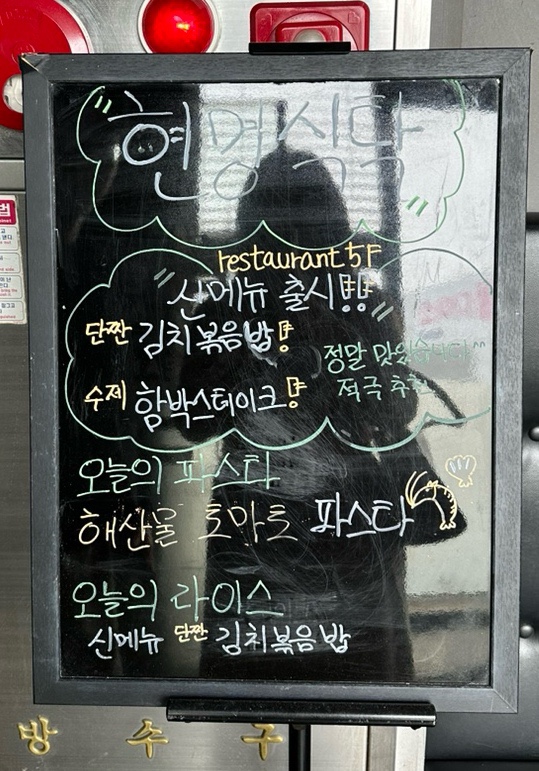 "현명식당"
restaurant 5F
"신메뉴 출시!!"
단짠 김치볶음밥!
정말 맛있습니다^^
적극 추천
수제 함박스테이크!
오늘의 파스타
해산물 토마토 파스타
오늘의 라이스
신메뉴 단짠 김치볶음밥
방수구